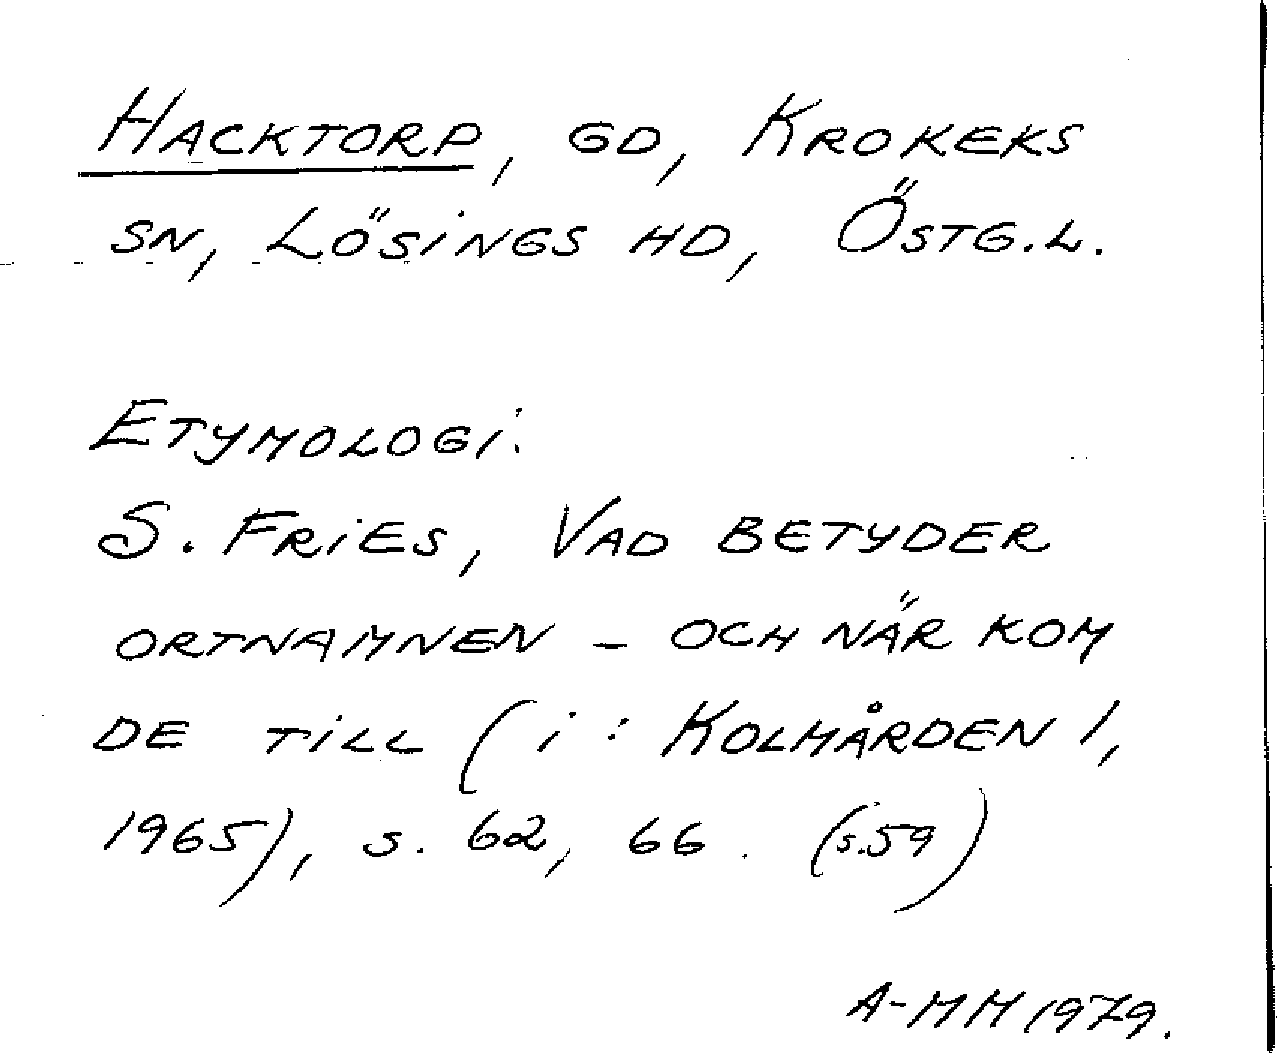 HACKTORP, GD, KROKEKS
SN, LÖSINGS HD, ÖSTG.L.
ETYMOLOGI:
S. FRIES, VAD BETYDER
ORTNAMNEN – OCH NÄR KOM
DE TILL (I: KOLMÅRDEN 1,
1965), S. 62, 66. (S.59)
A-MM 1979.